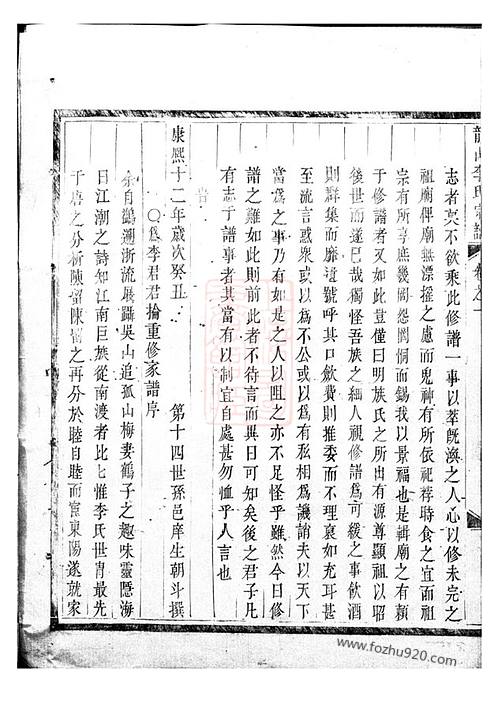 龍山李氏宗譜 卷之一
志者莫不欲乘此修譜一事以萃旣渙之人心以修未完之
祖廟俾廟無漂搖之慮而鬼神有所依祀葬時食之宜而祖
宗有所享庶幾罔怨罔恫而錫我以景福也是輯廟之有藉
于修譜者又如此豈僅曰明族氏之所出有源尊顯祖以昭
後世而遂已哉獨怪吾族之細人視修譜爲可緩之事飲酒
則群集而靡遺號呼其口斂費則推委而不理裒如充耳甚
至流言惑衆或以爲不公或以爲有私相爲譏誚夫以天下
當爲之事乃有如是之人以阻之亦不足怪乎雖然今日修
譜之難如此則前此者不待言而異日可知矣後之君子凡
有志于譜事者其當有以制宜自處甚勿恤乎人言也
旹
康熙十二年歲次癸丑 第十四世孫邑庠生朝斗撰
〇爲李君君掄重修家譜序
余自鶴遡浙流展躡吳山追孤山梅妻鶴子之趣味靈隱海
日江潮之詩知江南巨族從南渡者比比惟李氏世胄最先
于唐之分析陳留陳留之再分於睦自睦而甯東陽遂就家
www.fozhu920.com